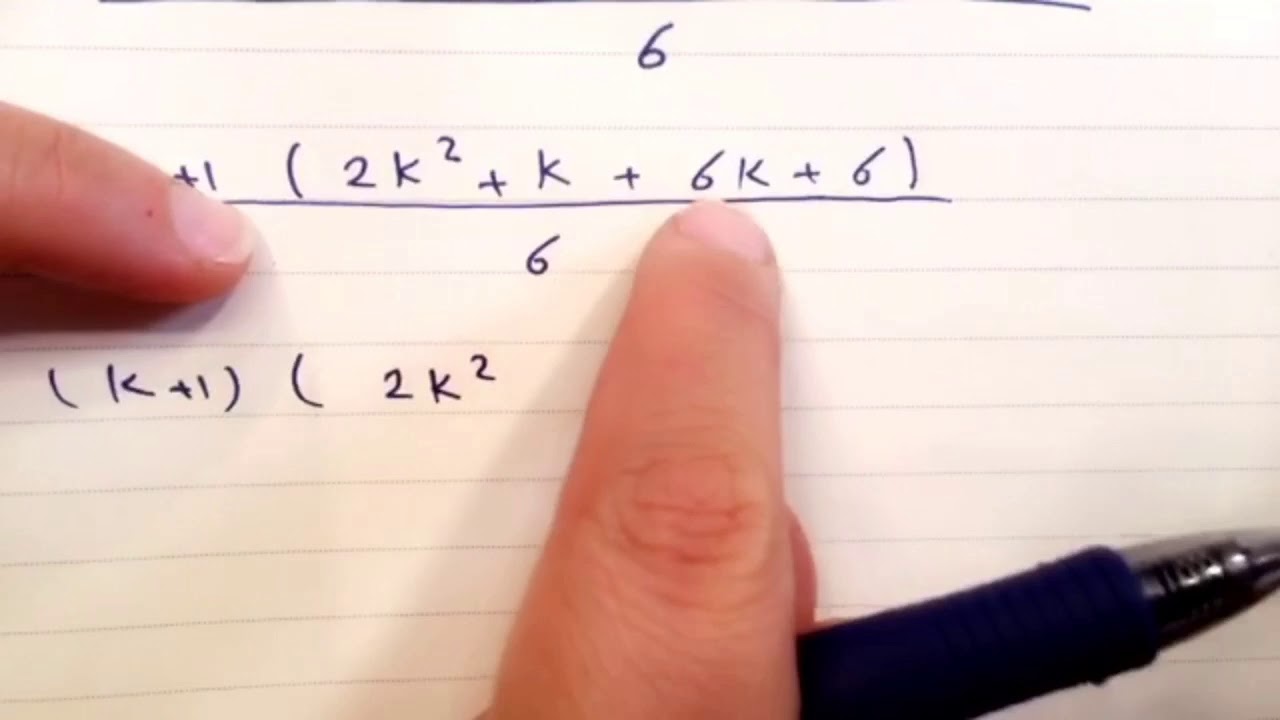 6
+1 ( 2k² + k + 6k + 6 )
6
(k+1) ( 2k²